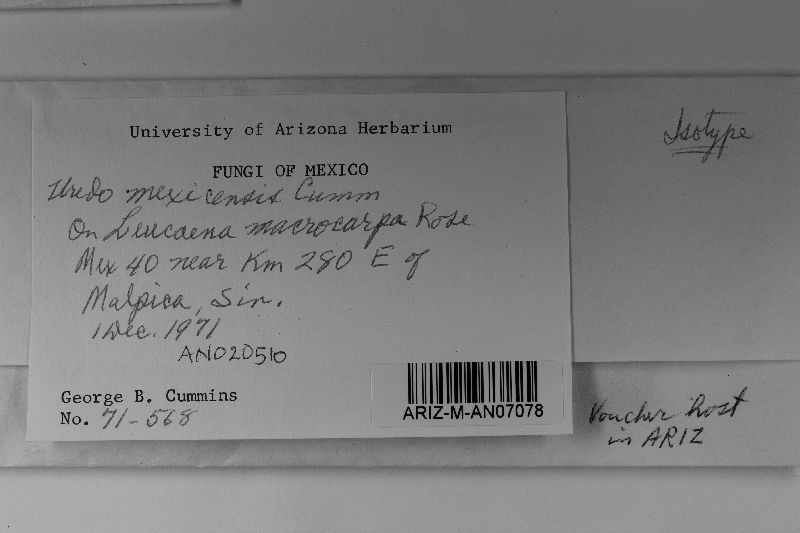 University of Arizona Herbarium
Isotype
FUNGI OF MEXICO
Uredo mexicensis Cumm
On Leucaena macrocarpa Rose
Mex 40 near Km 280 E of
Malpica, Sin.
1 Dec. 1971
AN020510
George B. Cummins
No. 71-568
ARIZ-M-AN07078
Voucher host
in ARIZ